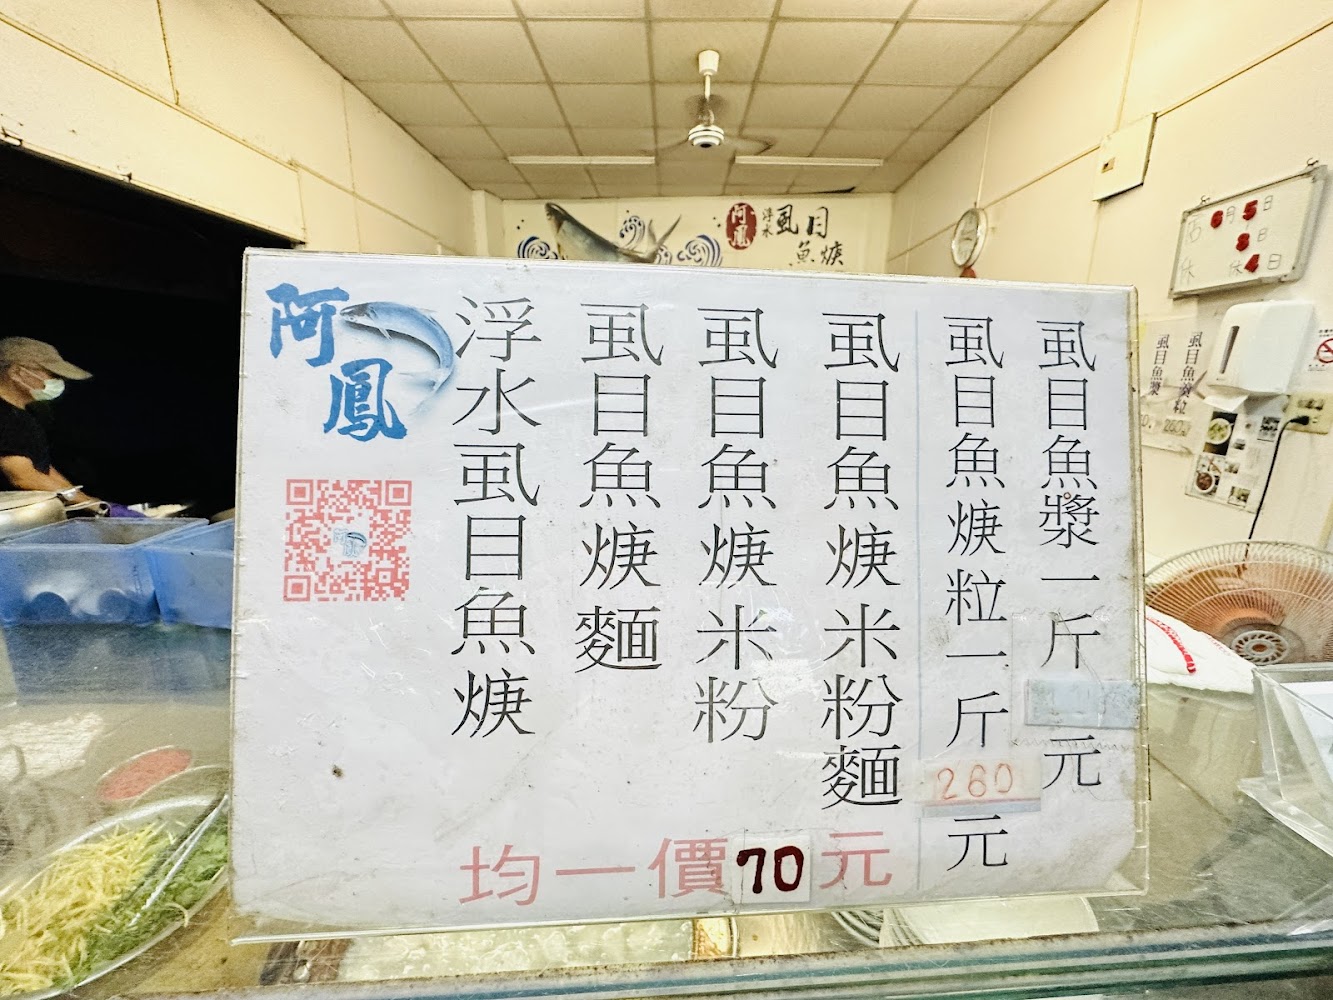 阿鳳
浮水
虱目
魚焿
6月5日
8日
休 休4日
阿鳳
浮水虱目魚焿
虱目魚焿麵
虱目魚焿米粉
虱目魚焿米粉麵
均一價70元
虱目魚焿粒一斤280元
虱目魚漿一斤
元
虱目魚漿